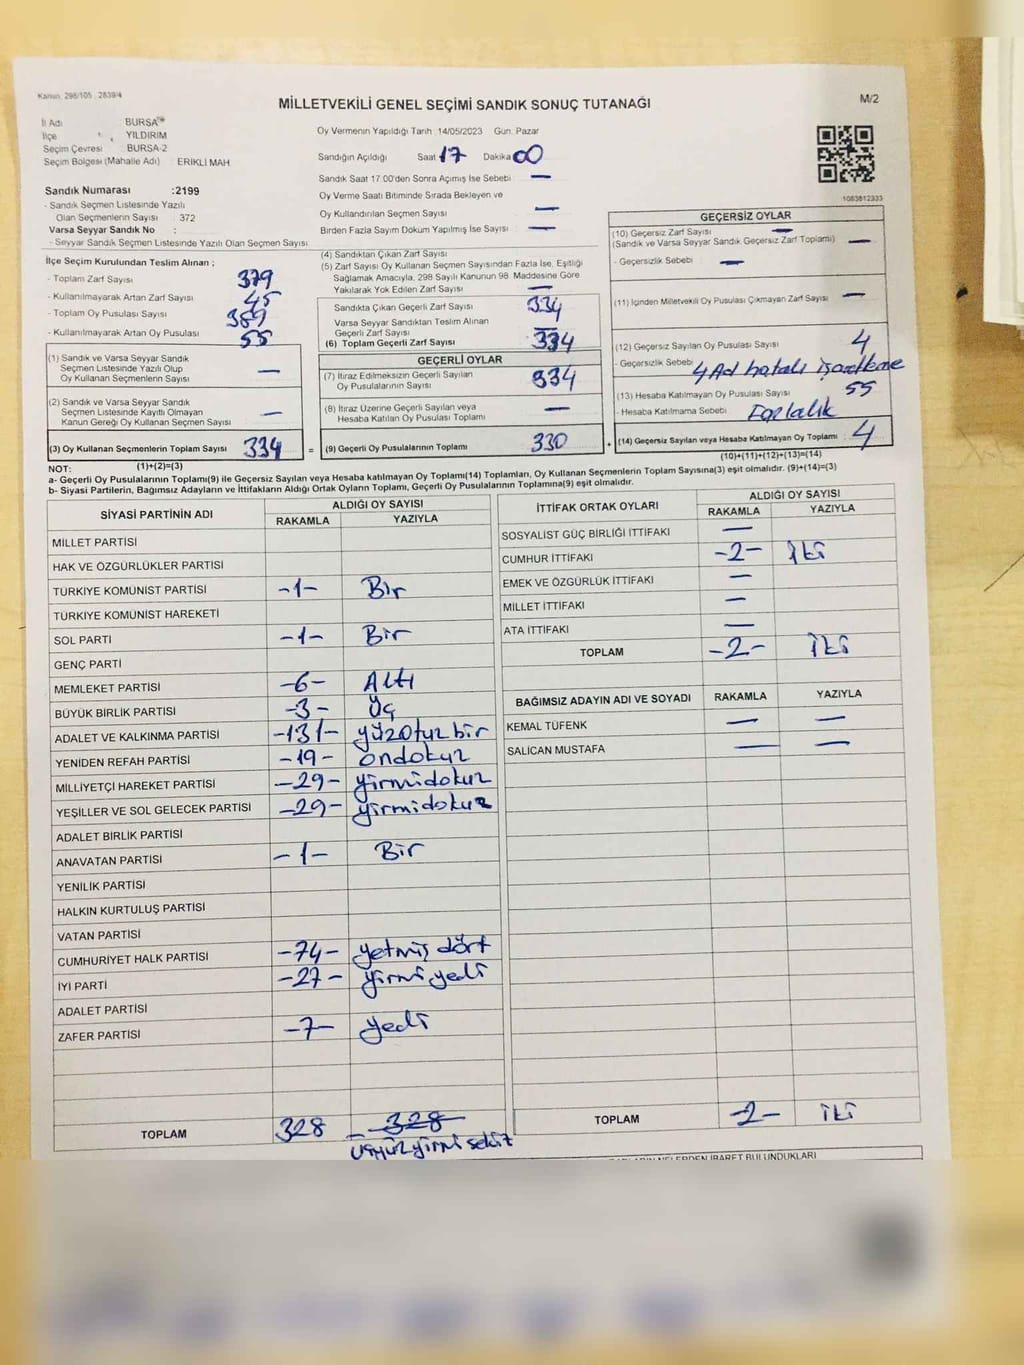 Kanun: 298/105 2839/4
MİLLETVEKİLİ GENEL SEÇİMİ SANDIK SONUÇ TUTANAĞI
M/2
İl Adı BURSA
İlçe YILDIRIM
Seçim Çevresi BURSA-2
Seçim Bölgesi (Mahalle Adı) ERİKLİ MAH.
Sandık Numarası :2199
- Sandık Seçmen Listesinde Yazılı
Olan Seçmenlerin Sayısı : 372
Varsa Seyyar Sandık No :
- Seyyar Sandık Seçmen Listesinde Yazılı Olan Seçmen Sayısı:
Oy Vermenin Yapıldığı Tarih: 14/05/2023 Gün: Pazar
Sandığın Açıldığı Saat 17 Dakika 00
Sandık Saat 17.00'den Sonra Açımış İse Sebebi : —
Oy Verme Saati Bitiminde Sırada Bekleyen ve
Oy Kullandırılan Seçmen Sayısı —
Birden Fazla Sayım Döküm Yapılmış İse Sayısı : —
1083812333
İlçe Seçim Kurulundan Teslim Alınan ;
- Toplam Zarf Sayısı 379
- Kullanılmayarak Artan Zarf Sayısı 45
- Toplam Oy Pusulası Sayısı 389
- Kullanılmayarak Artan Oy Pusulası 55
(1) Sandık ve Varsa Seyyar Sandık
Seçmen Listesinde Yazılı Olup
Oy Kullanan Seçmenlerin Sayısı —
(2) Sandık ve Varsa Seyyar Sandık
Seçmen Listesinde Kayıtlı Olmayan
Kanun Gereği Oy Kullanan Seçmen Sayısı —
(3) Oy Kullanan Seçmenlerin Toplam Sayısı 334
(1)+(2)=(3)
(4) Sandıktan Çıkan Zarf Sayısı
(5) Zarf Sayısı Oy Kullanan Seçmen Sayısından Fazla İse, Eşitliği
Sağlamak Amacıyla, 298 Sayılı Kanunun 98. Maddesine Göre
Yakılarak Yok Edilen Zarf Sayısı —
Sandıkta Çıkan Geçerli Zarf Sayısı 334
Varsa Seyyar Sandıktan Teslim Alınan
Geçerli Zarf Sayısı —
(6) Toplam Geçerli Zarf Sayısı 334
GEÇERLİ OYLAR
(7) İtiraz Edilmeksizin Geçerli Sayılan
Oy Pusulalarının Sayısı 334
(8) İtiraz Üzerine Geçerli Sayılan veya
Hesaba Katılan Oy Pusulası Toplamı —
= (9) Geçerli Oy Pusulalarının Toplamı 330
GEÇERSİZ OYLAR
(10) Geçersiz Zarf Sayısı —
(Sandık ve Varsa Seyyar Sandık Geçersiz Zarf Toplamı) —
- Geçersizlik Sebebi : —
(11) İçinden Milletvekili Oy Pusulası Çıkmayan Zarf Sayısı —
(12) Geçersiz Sayılan Oy Pusulası Sayısı 4
- Geçersizlik Sebebi : 4 Ad hatalı işaretleme
(13) Hesaba Katılmayan Oy Pusulası Sayısı 55
- Hesaba Katılmama Sebebi :
+ (14) Geçersiz Sayılan veya Hesaba Katılmayan Oy Toplamı 4
(10)+(11)+(12)+(13)=(14)
NOT:
a- Geçerli Oy Pusulalarının Toplamı(9) ile Geçersiz Sayılan veya Hesaba katılmayan Oy Toplamı(14) Toplamları, Oy Kullanan Seçmenlerin Toplam Sayısına(3) eşit olmalıdır. (9)+(14)=(3)
b- Siyasi Partilerin, Bağımsız Adayların ve İttifakların Aldığı Ortak Oyların Toplamı, Geçerli Oy Pusulalarının Toplamına(9) eşit olmalıdır.
SİYASİ PARTİNİN ADI ALDIĞI OY SAYISI
RAKAMLA YAZIYLA
MİLLET PARTİSİ
HAK VE ÖZGÜRLÜKLER PARTİSİ
TÜRKİYE KOMÜNİST PARTİSİ -1- Bir
TÜRKİYE KOMÜNİST HAREKETİ
SOL PARTİ -1- Bir
GENÇ PARTİ
MEMLEKET PARTİSİ -6- Altı
BÜYÜK BİRLİK PARTİSİ -3- Üç
ADALET VE KALKINMA PARTİSİ -131- yüzotuz bir
YENİDEN REFAH PARTİSİ -19- ondokuz
MİLLİYETÇİ HAREKET PARTİSİ -29- yirmidokuz
YEŞİLLER VE SOL GELECEK PARTİSİ -29- yirmidokuz
ADALET BİRLİK PARTİSİ
ANAVATAN PARTİSİ -1- Bir
YENİLİK PARTİSİ
HALKIN KURTULUŞ PARTİSİ
VATAN PARTİSİ
CUMHURİYET HALK PARTİSİ -74- yetmiş dört
İYİ PARTİ -27- yirmi yedi
ADALET PARTİSİ
ZAFER PARTİSİ -7- yedi
TOPLAM 328 328
üçyüzyirmi sekiz
İTTİFAK ORTAK OYLARI ALDIĞI OY SAYISI
RAKAMLA YAZIYLA
SOSYALİST GÜÇ BİRLİĞİ İTTİFAKI —
CUMHUR İTTİFAKI -2- İki
EMEK VE ÖZGÜRLÜK İTTİFAKI —
MİLLET İTTİFAKI —
ATA İTTİFAKI —
TOPLAM -2- İki
BAĞIMSIZ ADAYIN ADI VE SOYADI RAKAMLA YAZIYLA
KEMAL TÜFENK — —
SALİCAN MUSTAFA — —
TOPLAM -2- iki